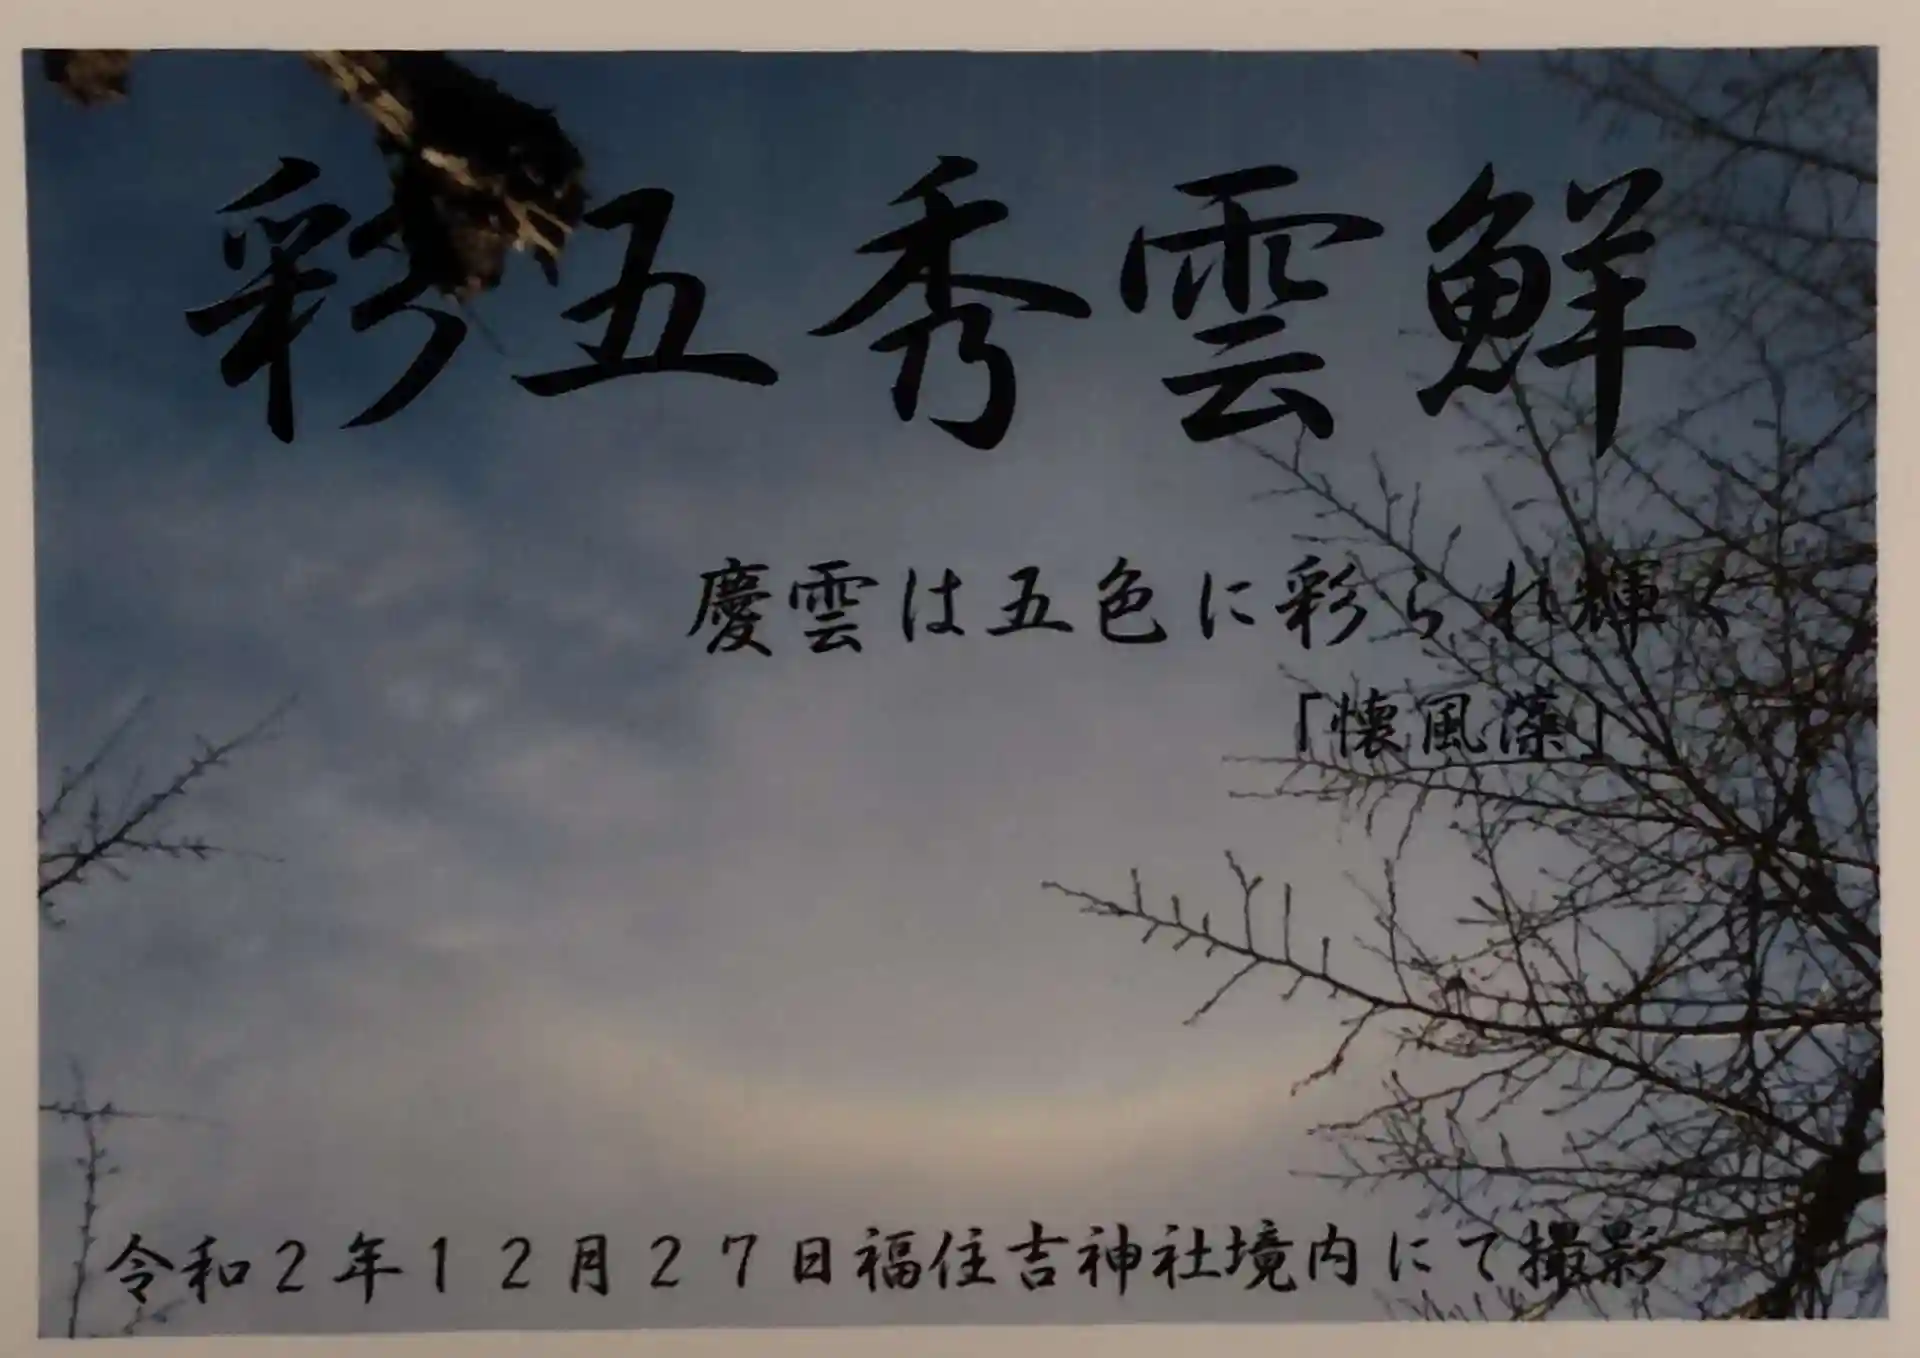 彩五秀雲鮮
慶雲は五色に彩られ輝く
「懐風藻」
令和2年12月27日福住吉神社境内にて撮影